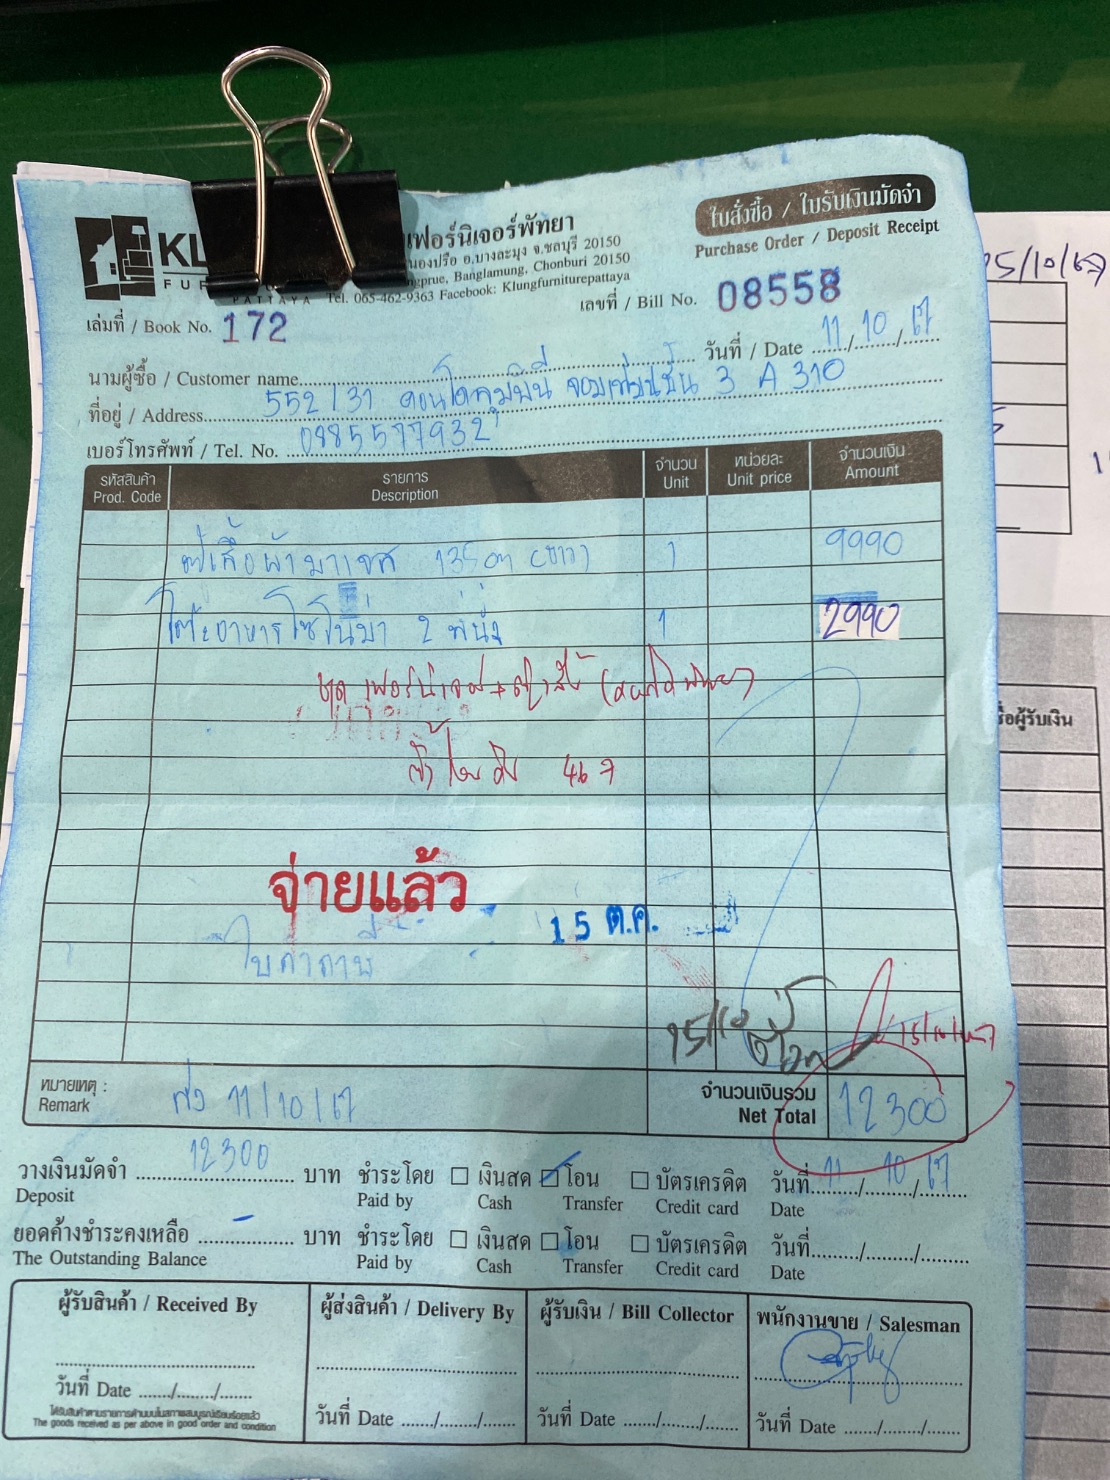 KL
เฟอร์นิเจอร์พัทยา
ใบสั่งซื้อ / ใบรับเงินมัดจำ
Purchase Order / Deposit Receipt
นองปรือ อ.บางละมุง จ.ชลบุรี 20150
ngprue, Banglamung, Chonburi 20150
PATTAYA Tel. 065-462-9363 Facebook: Klungfurniturepattaya
เล่มที่ / Book No. 172
เลขที่ / Bill No. 08558
วันที่ / Date 11/10/67
นามผู้ซื้อ / Customer name
ที่อยู่ / Address 552/31 คอนโดลุมพินี จอมเทียน ชั้น 3 A 310
เบอร์โทรศัพท์ / Tel. No. 0985577932
รหัสสินค้า รายการ จำนวน หน่วยละ จำนวนเงิน
Prod. Code Description Unit Unit price Amount
ตู้เสื้อผ้า 135 cm (ขาว) 1 9990
โต๊ะอาหารโซโนม่า 2 ที่นั่ง 1 2990
467
จ่ายแล้ว
15 ต.ค.
15/10
15/10/67
หมายเหตุ : ส่ง 11/10/67 จำนวนเงินรวม 12300
Remark Net Total
วางเงินมัดจำ 12300 บาท ชำระโดย เงินสด โอน บัตรเครดิต วันที่ 11/10/67
Deposit Paid by Cash Transfer Credit card Date
ยอดค้างชำระคงเหลือ - บาท ชำระโดย เงินสด โอน บัตรเครดิต วันที่ ....../......./.......
The Outstanding Balance Paid by Cash Transfer Credit card Date
ผู้รับสินค้า / Received By ผู้ส่งสินค้า / Delivery By ผู้รับเงิน / Bill Collector พนักงานขาย / Salesman
วันที่ Date ....../......./....... วันที่ Date ....../......./....... วันที่ Date ....../......./....... วันที่ Date ....../......./.......
ได้รับสินค้าตามรายการด้านบนในสภาพสมบูรณ์เรียบร้อยแล้ว
The goods received as per above in good order and condition
15/10/67
ชื่อผู้รับเงิน